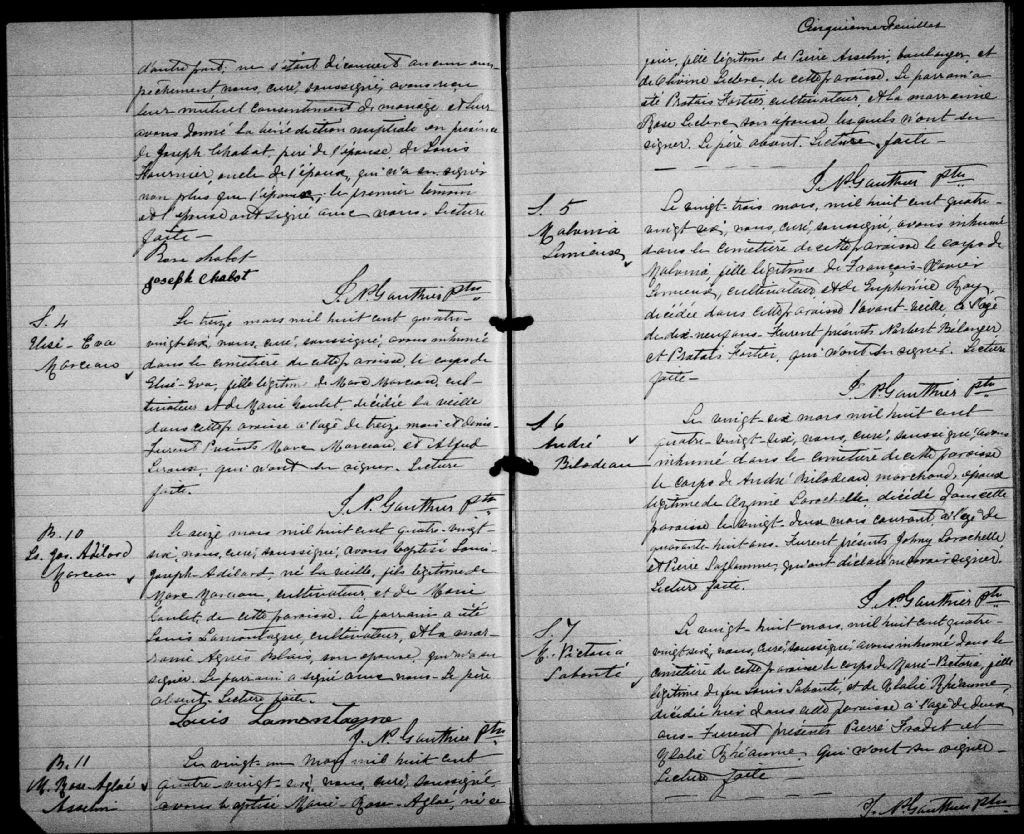 d'autre part; ne s'étant découvert aucun em-
pêchement nous, curé, soussigné, avons reçu
leur mutuel consentement de mariage et leur
avons donné la bénédiction nuptiale en présence
de Joseph Chabot, père de l'épouse, de Louis
Fournier oncle de l'époux, qui n'a su signer
non plus que l'époux; le premier témoin
et l'épouse ont signé avec nous. Lecture
faite -
Rose Chabot
Joseph Chabot
J. N. Gauthier Ptre
S. 4
Elisé-Eva
Marceau
Le treize mars mil huit cent quatre-
vingt-six, nous, curé, soussigné, avons inhumé
dans le cimetière de cette paroisse le corps de
Elisé-Eva, fille légitime de Marc Marceau, cul-
tivateur et de Marie Goulet, décédée la veille
dans cette paroisse à l'agé de treize mois et demi-
Furent Présents Marc Marceau, et Alfred
qui n'ont su signer. Lecture
faite.
J. N. Gauthier Ptre
B. 10
Ls. Jos. Adélard
Marceau
Le seize mars mil huit cent quatre-vingt-
six, nous, curé, soussigné, avons baptisé Louis-
Joseph-Adélard, né la veille, fils légitime de
Marc Marceau, cultivateur, et de Marie
Goulet, de cette paroisse. Le parrain a été
Louis Lamontagne, cultivateur, et la mar-
raine Agnès Blais, son épouse, qui n'a su
signer. Le parrain a signé avec nous. Le père
absent. Lecture faite.
Louis Lamontagne
J. N. Gauthier Ptre
B. 11
M. Rose-Aglaé
Asselin
Le vingt-un mars mil huit cent
quatre-vingt-six, nous, curé, soussigné,
avons baptisé Marie-Rose-Aglaé, née ce
Cinquième Feuillet
jour, fille légitime de Pierre Asselin, boulanger, et
de Olivine Leclerc, de cette paroisse. Le parrain a
été Protais Fortier, cultivateur, et la marraine
Rose Leclerc, son épouse lesquels n'ont su
signer. Le père absent. Lecture faite -
J. N. Gauthier Ptre
S. 5
Malvina
Lemieux
Le vingt-trois mars, mil huit cent quatre-
vingt-six, nous, curé, soussigné, avons inhumé
dans le cimetière de cette paroisse le corps de
Malvina, fille légitime de François-Xavier
Lemieux, cultivateur et de Euphémie Roy,
décédée dans cette paroisse l'avant-veille, à l'agé
de dix-neuf ans. Furent présents, Norbert Bélanger
et Protais Fortier, qui n'ont su signer. Lecture
faite -
J. N. Gauthier Ptre
S. 6
André
Bilodeau
Le vingt-six mars mil huit cent
quatre-vingt-six, nous, curé, soussigné, avons
inhumé dans le cimetière de cette paroisse
le corps de André Bilodeau marchand, époux
légitime de Larochelle, décédé dans cette
paroisse le vingt-deux mars courant, à l'agé de
quarante-huit ans. Furent présents Johny Larochelle
et Pierre Laflamme, qui ont déclaré ne savoir signer.
Lecture faite.
J. N. Gauthier Ptre
S. 7
M. Victoria
Labonté
Le vingt-huit mars, mil huit cent quatre-
vingt-six, nous, curé, soussigné, avons inhumé dans le
cimetière de cette paroisse le corps de Marie-Victoria, fille
légitime de feu Louis Labonté, et de Elalie Rhéaume,
décédée hier dans cette paroisse à l'agé de deux
ans. Furent présents Pierre Fradet et
Elalie Rhéaume qui n'ont su signer -
Lecture faite -
J. N. Gauthier Ptre